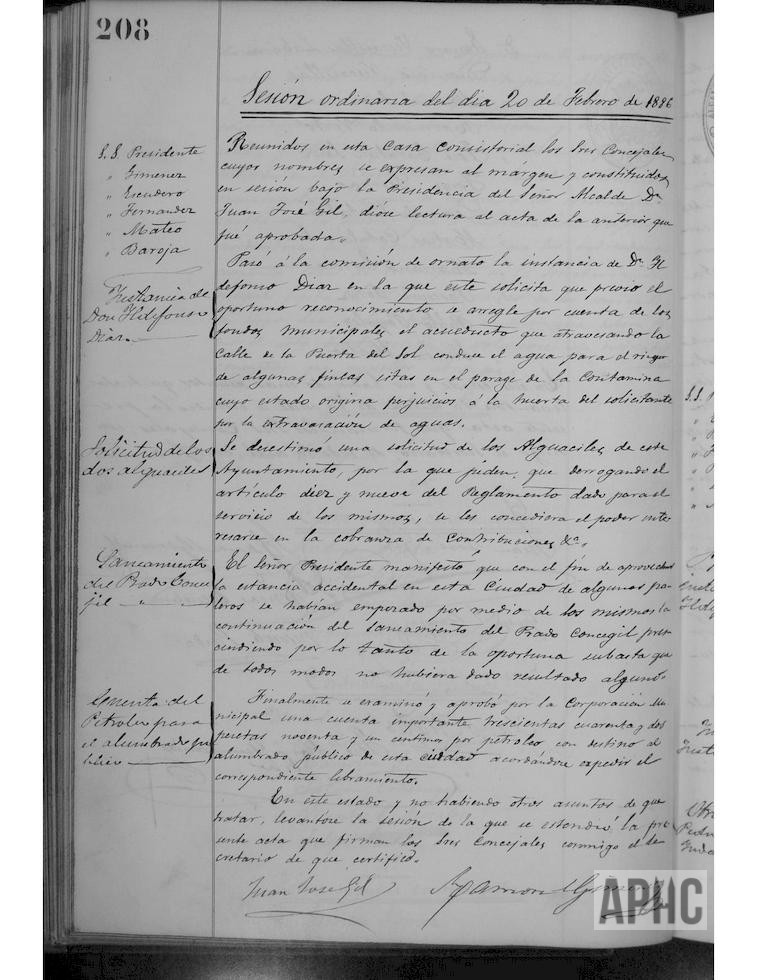 208
Sesión ordinaria del dia 20 de Febrero de 1886
S. S. Presidente
" Gimenez
" Escudero
" Fernandez
" Mateo
" Baroja
Reunidos en esta Casa Consistorial los Sres Concejales
cuyos nombres se expresan al márgen y constituidos
en sesión bajo la Presidencia del Señor Alcalde Dn.
Juan José Gil, dióse lectura al acta de la anterior que
fué aprobada.
Instancia de
Don Ildefonso
Diaz.
Pasó á la comisión de ornato la instancia de Dn. Il
defonso Diaz en la que este solicita que previo el
oportuno reconocimiento se arregle por cuenta de los
fondos municipales el acueducto que atravesando la
Calle de la Puerta del Sol conduce el agua para el riego
de algunas fintas sitas en el parage de la Contamina
cuyo estado origina perjuicios á la huerta del solicitante
por la extravasación de aguas.
Solicitud de los
dos alguaciles
Se desestimó una solicitud de los Alguaciles de este
Ayuntamiento, por la que piden, que derrogando el
artículo diez y nueve del Reglamento dado para el
servicio de los mismos, se les concediera el poder inte
resarse en la cobranza de Contribuciones &a.
Saneamiento
del Prado Conce
jil
El Señor Presidente manifestó que con el fin de aprovechar
la estancia accidental en esta Ciudad de algunos
se habían empezado por medio de los mismos la
continuación del saneamiento del Prado Concegil pres
cindiendo por lo tanto de la oportuna subasta que
de todos modos no hubiera dado resultado alguno.
Cuenta del
Petroleo para
el alumbrado pu
blico
Finalmente se examinó y aprobó por la Corporación Mu
nicipal una cuenta importante trescientas cuarenta y dos
pesetas noventa y un centimos por petroleo con destino al
alumbrado público de esta ciudad acordandose expedir el
correspondiente libramiento.
En este estado y no habiendo otros asuntos de que
tratar, levantóse la sesión de la que se estendió la pre
sente acta que firman los Sres Concejales conmigo el Se
cretario de que certifico.
Juan José Gil
Ramon Gimenez
APHC